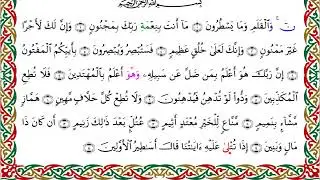 بِسْمِ اللَّهِ الرَّحْمَٰنِ الرَّحِيمِ
نٓ ۚ وَٱلْقَلَمِ وَمَا يَسْطُرُونَ ۝ مَآ أَنتَ بِنِعْمَةِ رَبِّكَ بِمَجْنُونٍ ۝ وَإِنَّ لَكَ لَأَجْرًا
غَيْرَ مَمْنُونٍ ۝ وَإِنَّكَ لَعَلَىٰ خُلُقٍ عَظِيمٍ ۝ فَسَتُبْصِرُ وَيُبْصِرُونَ ۝ بِأَييِّكُمُ ٱلْمَفْتُونُ
۝ إِنَّ رَبَّكَ هُوَ أَعْلَمُ بِمَن ضَلَّ عَن سَبِيلِهِۦ وَهُوَ أَعْلَمُ بِٱلْمُهْتَدِينَ ۝ فَلَا تُطِعِ
ٱلْمُكَذِّبِينَ ۝ وَدُّوا۟ لَوْ تُدْهِنُ فَيُدْهِنُونَ ۝ وَلَا تُطِعْ كُلَّ حَلَّافٍ مَّهِينٍ ۝ هَمَّازٍ
مَّشَّآءٍۭ بِنَمِيمٍ ۝ مَّنَّاعٍ لِّلْخَيْرِ مُعْتَدٍ أَثِيمٍ ۝ عُتُلٍّۭ بَعْدَ ذَٰلِكَ زَنِيمٍ ۝ أَن كَانَ ذَا
مَالٍ وَبَنِينَ ۝ إِذَا تُتْلَىٰ عَلَيْهِ ءَايَٰتُنَا قَالَ أَسَٰطِيرُ ٱلْأَوَّلِينَ ۝